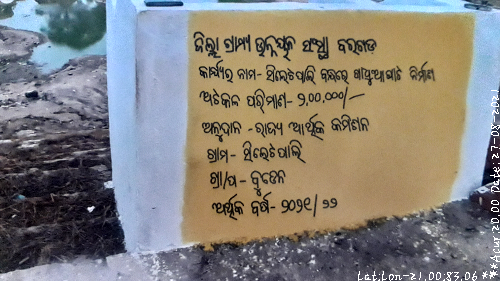 ଜିଲ୍ଲା ଗ୍ରାମ୍ୟ ଉନ୍ନୟନ ସଂସ୍ଥା ବରଗଡ଼
କାର୍ଯ୍ୟର ନାମ- ସିଲେଟପାଲି ବନ୍ଧରେ ଗାଧୁଆଘାଟ ନିର୍ମାଣ
ଅଟକଳ ପରିମାଣ- ୨,00,000/-
ଅନୁଦାନ - ରାଜ୍ୟ ଆର୍ଥିକ କମିଶନ
ଗ୍ରାମ- ସିଲେଟପାଲି
ଗ୍ରା/ପ -
ଆର୍ଥିକ ବର୍ଷ- ୨୦୨୧/୨୨
Lat,Lon-21.00,83.06 ***Acur:20.00 Date:27-08-2021